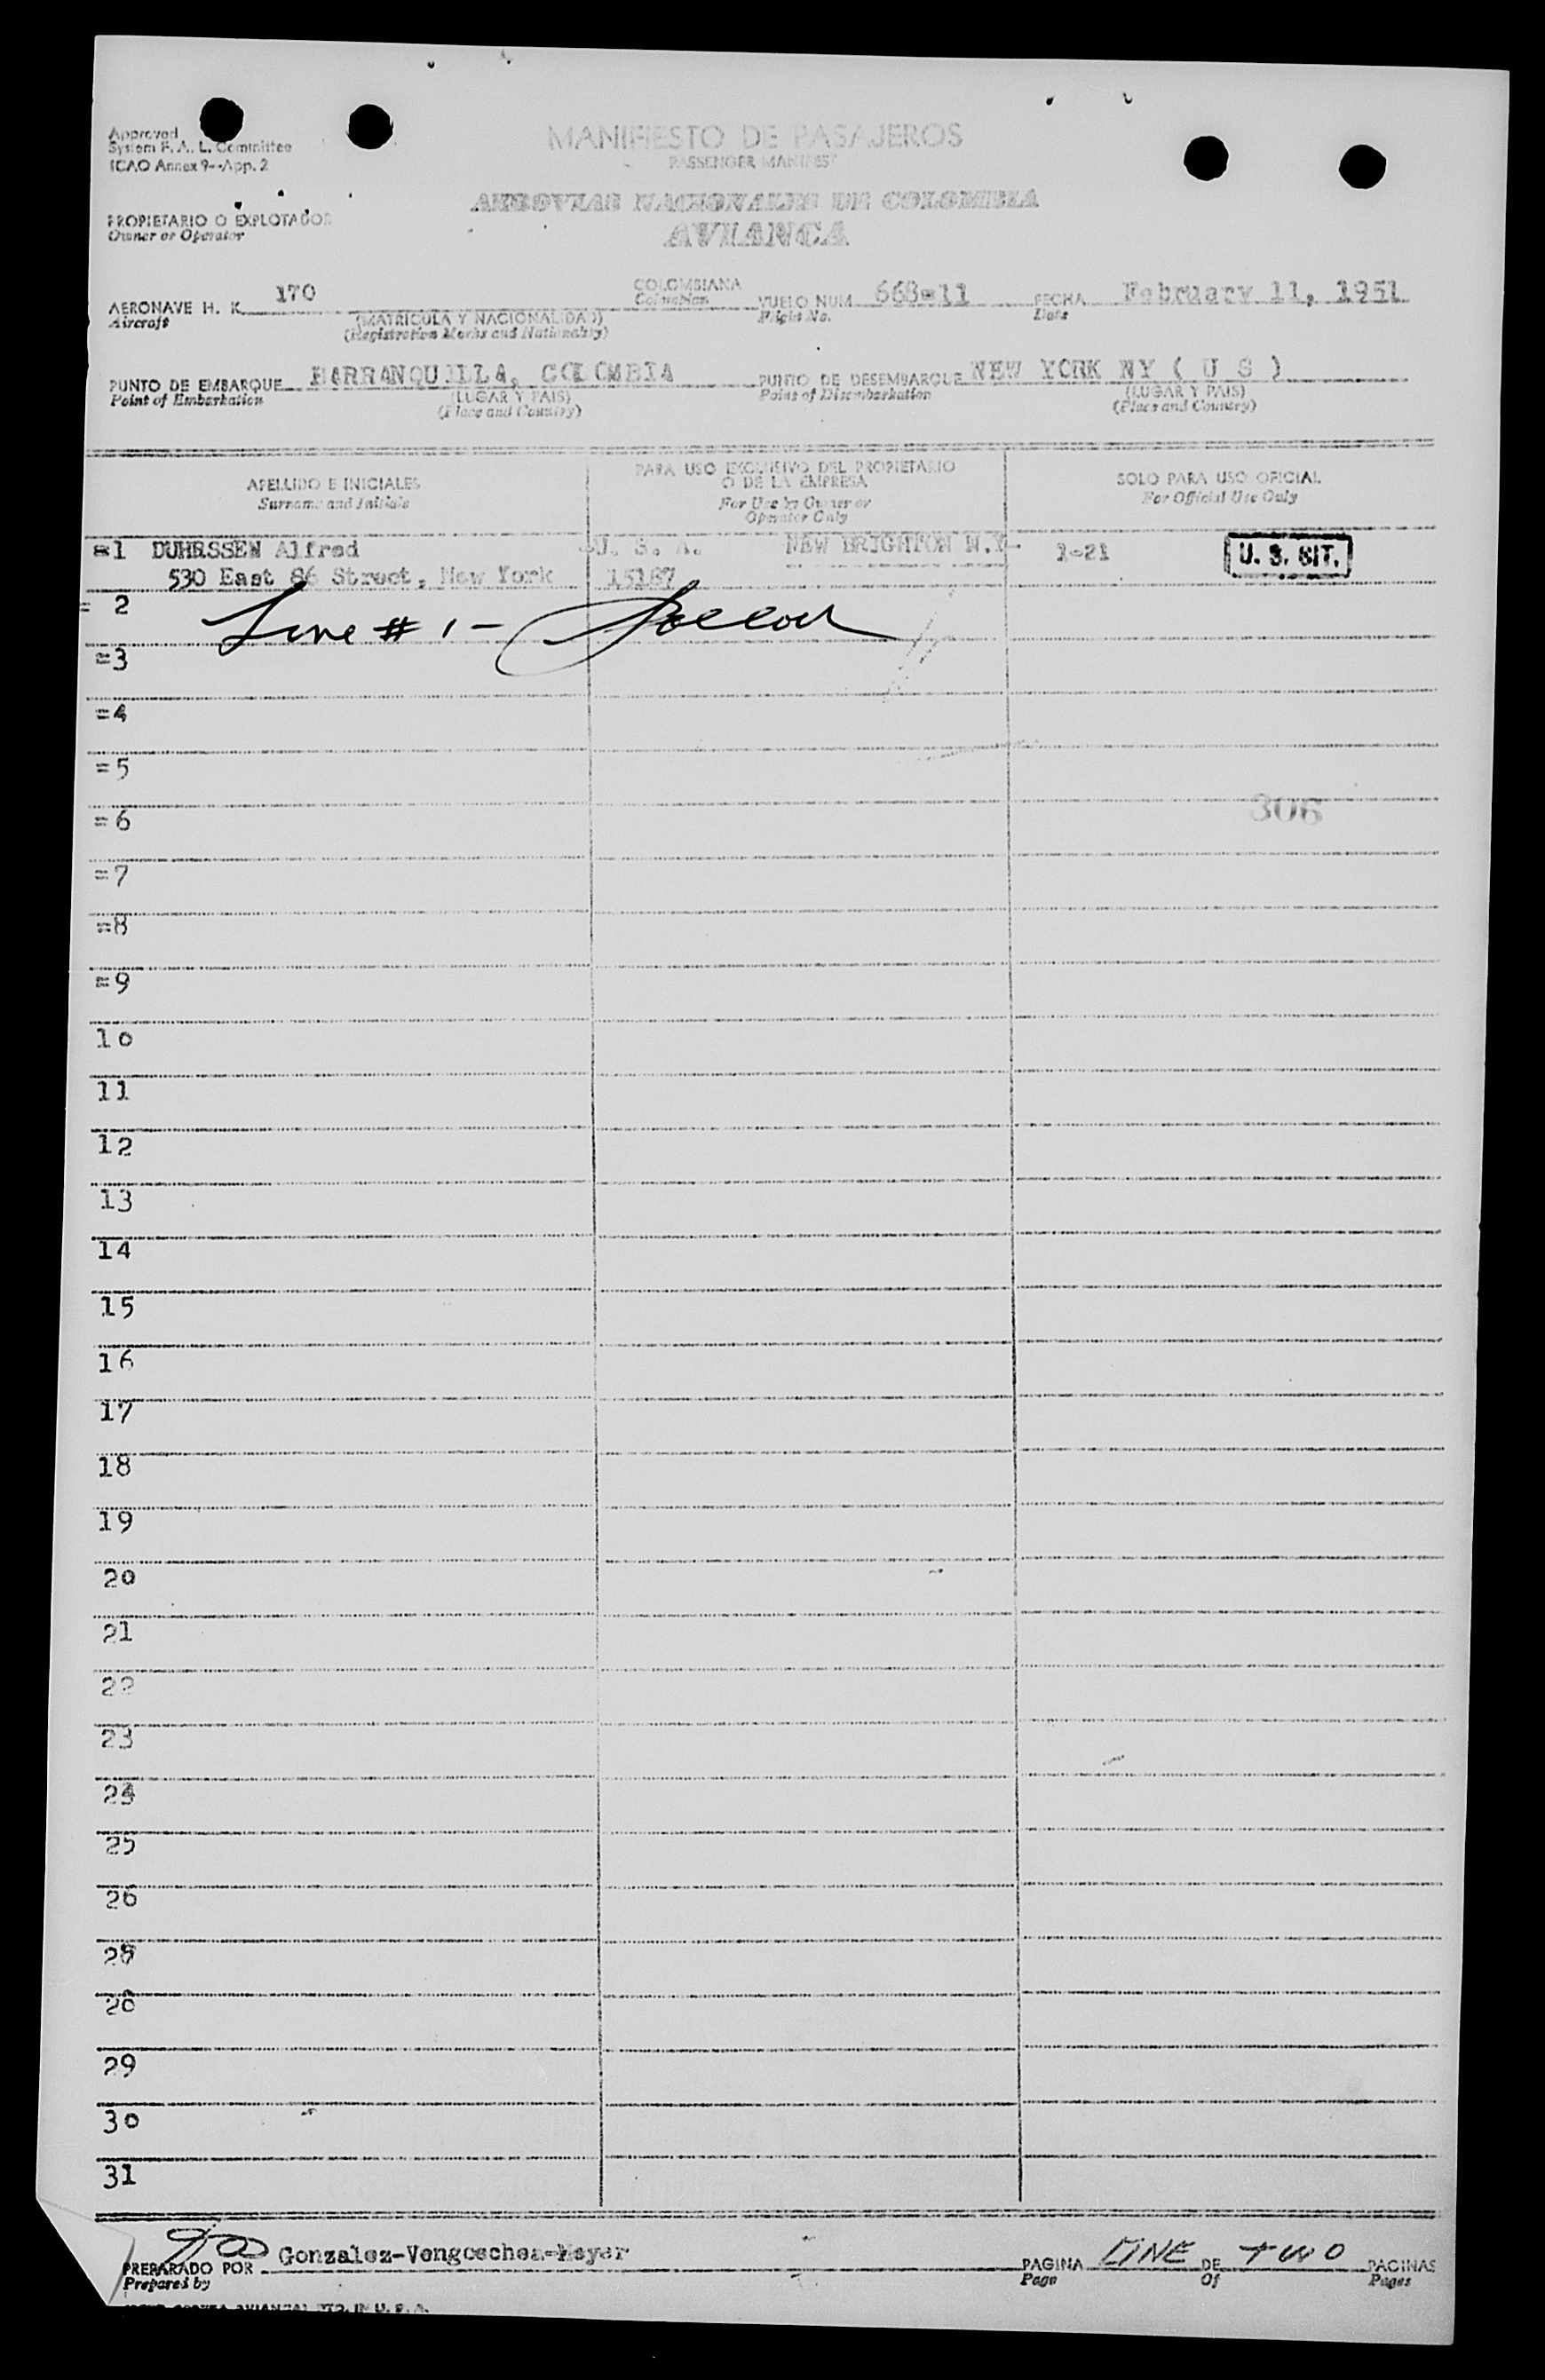 Approved
System F. A. L. Committee
ICAO Annex 9--App. 2
MANIFIESTO DE PASAJEROS
PASSENGER MANIFEST
AEROVIAS NACIONALES DE COLOMBIA
AVIANCA
PROPIETARIO O EXPLOTADOR
Owner or Operator
AERONAVE H. K. 170 COLOMBIANA VUELO NUM 668=11 FECHA February 11, 1951
Aircraft (MATRICULA Y NACIONALIDAD) Colombian Flight No. Date
(Registration Marks and Nationality)
PUNTO DE EMBARQUE BARRANQUILLA, COLOMBIA PUNTO DE DESEMBARQUE NEW YORK NY ( U S )
Point of Embarkation (LUGAR Y PAIS) Point of Disembarkation (LUGAR Y PAIS)
(Place and Country) (Place and Country)
APELLIDO E INICIALES PARA USO EXCLUSIVO DEL PROPIETARIO O DE LA EMPRESA SOLO PARA USO OFICIAL
Surname and Initials For Use by Owner or Operator Only For Official Use Only
=1 DUHRSSEN Alfred U. S. A. NEW BRIGHTON N.Y- 1-21 U. S. CIT.
530 East 86 Street, New York 15187
= 2
Line # 1-
=3
=4
=5
306
=6
=7
=8
=9
10
11
12
13
14
15
16
17
18
19
20
21
22
23
24
25
26
28
29
30
31
Gonzalez-Vengoechea-Meyer
PREPARADO POR PAGINA ONE DE TWO PAGINAS
Prepared by Page Of Pages